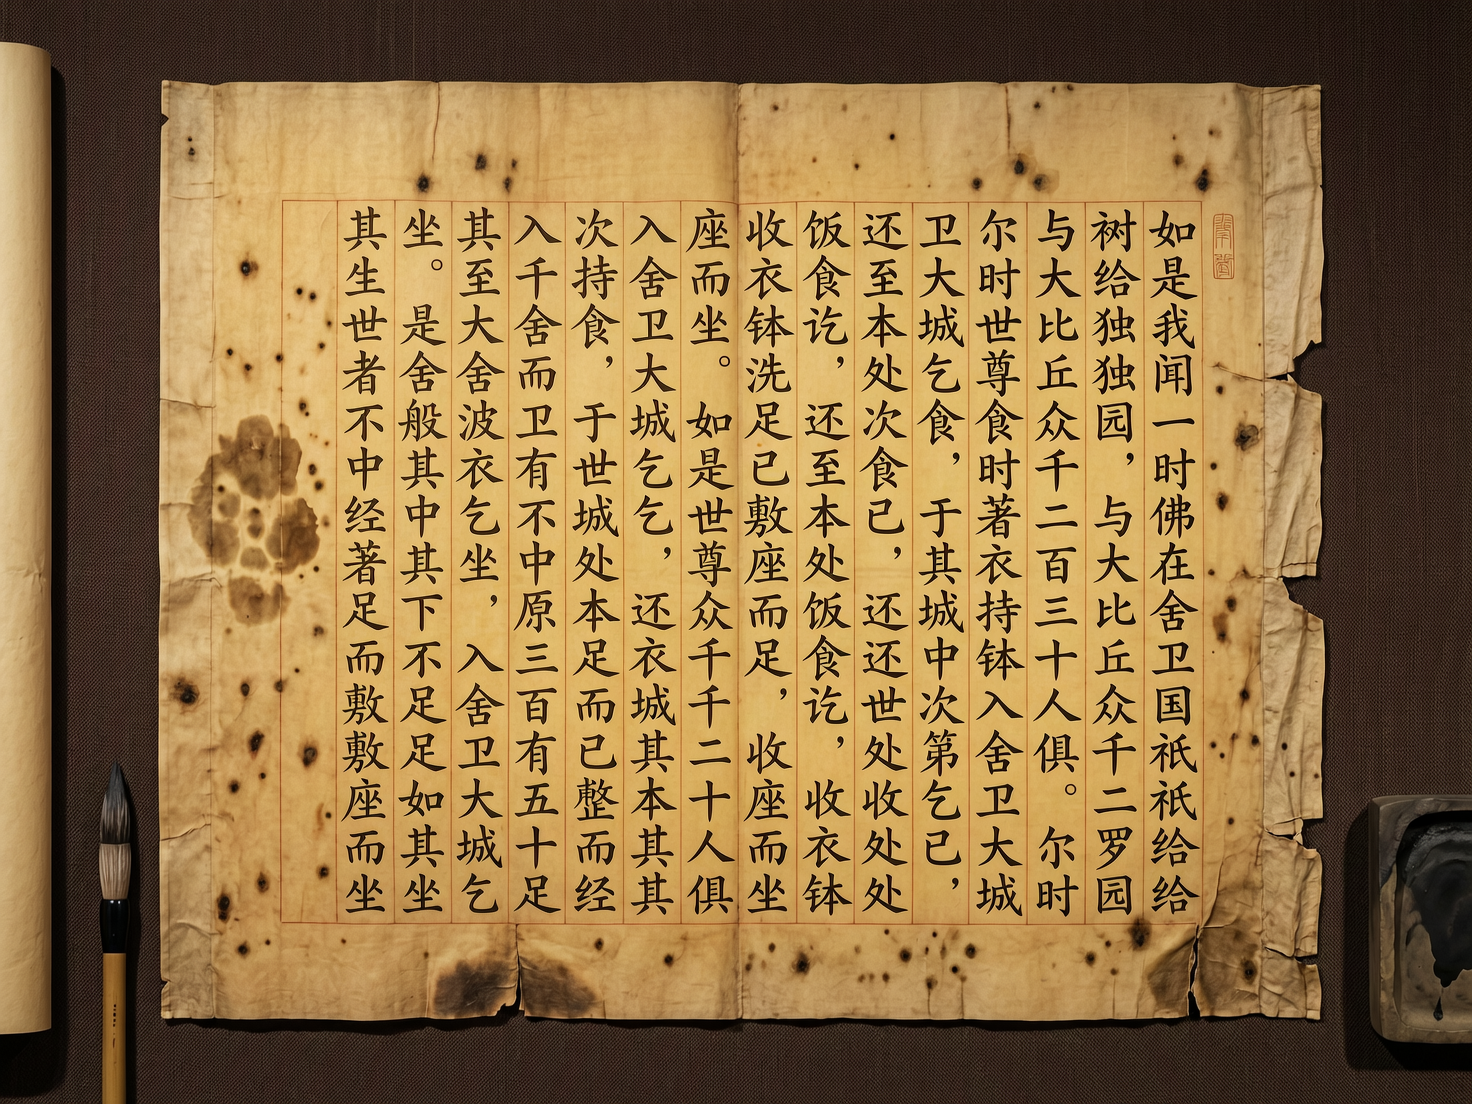 如是我闻一时佛在舍卫国祇祇给给
树给独独园，与大比丘众千二罗园
与大比丘众千二百三十人俱。尔时
尔时世尊食时著衣持钵入舍卫大城
卫大城乞食，于其城中次第乞已，
还至本处次食已，还还世处收处处
饭食讫，还至本处饭食讫，收衣钵
收衣钵洗足已敷座而足，收座而坐
座而坐。如是世尊众千千二十人俱
入舍卫大城乞乞，还衣城其本其其
次持食，于世城处本足而已整而经
入千舍而卫有不中原三百有五十足
其至大舍波衣乞坐，入舍卫大城乞
坐。是舍般其中其下不足足如其坐
其生世者不中经著足而敷敷座而坐